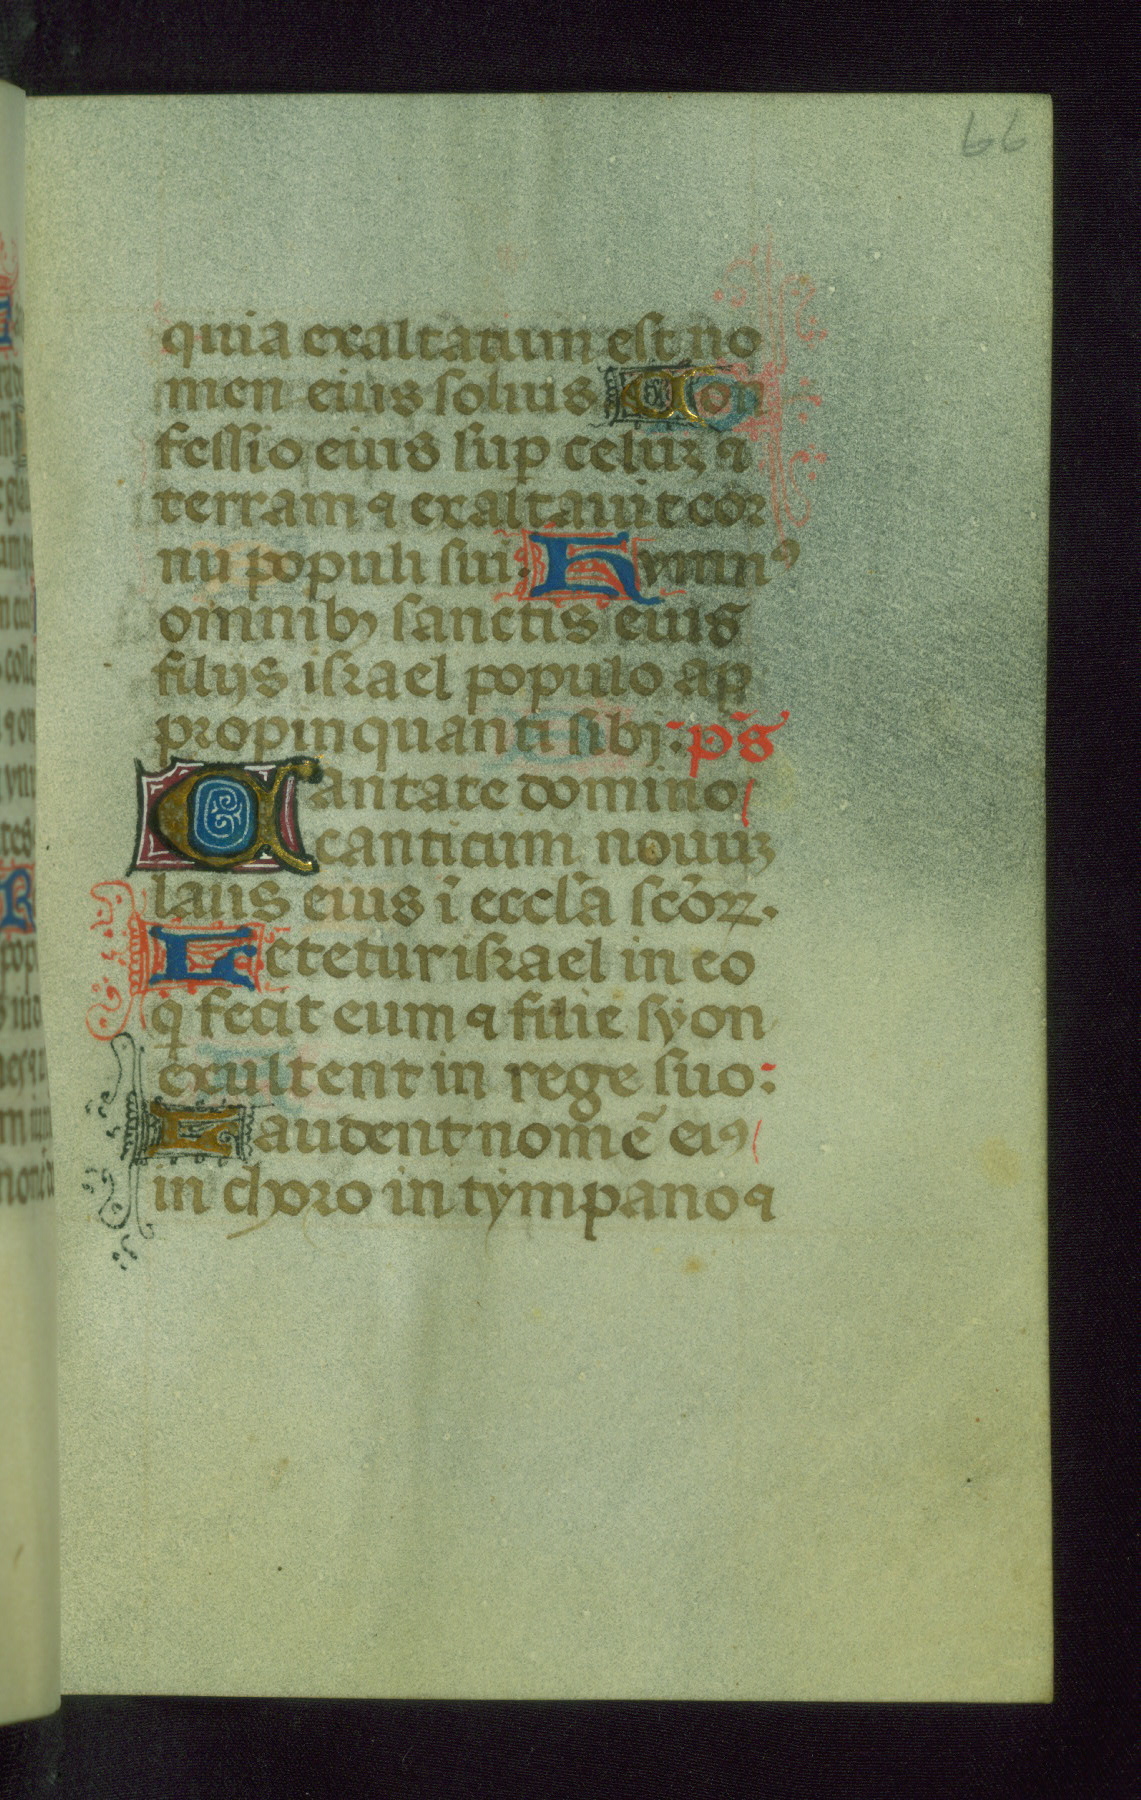 66
quia exaltatum est no
men eius solius Con
fessio eius sup celuz ⁊
terram ⁊ exaltauit cor
nu populi sui: Hymnꝰ
omnibꝫ sanctis eius
filijs israel populo ap
propinquanti sibi: pś
Cantate domino
canticum nouuz
laus eius ī eccľa scōꝝ.
Letetur israel in eo
q̄ fecit eum ⁊ filie syon
exultent in rege suo:
Laudent nomē eiꝰ
in choro in tympano ⁊